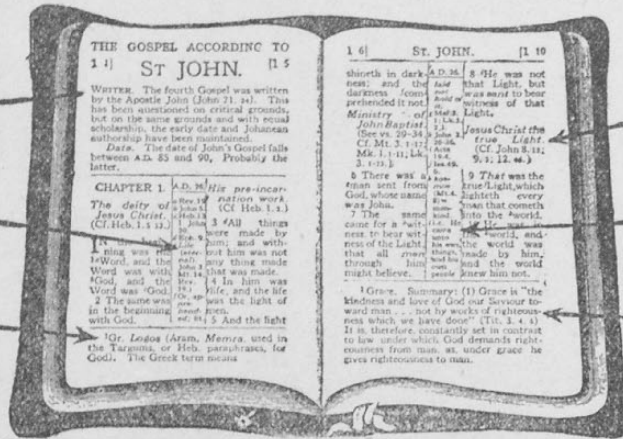 THE GOSPEL ACCORDING TO
1 1] [1 5
ST JOHN.
WRITER. The fourth Gospel was written
by the Apostle John (John 21. 24). This
has been questioned on critical grounds,
but on the same grounds and with equal
scholarship, the early date and Johanean
authorship have been maintained.
Date. The date of John's Gospel falls
between A.D. 85 and 90, Probably the
latter.
CHAPTER 1.
The deity of
Jesus Christ.
(Cf. Heb. 1. 5 12.)
IN the
ning was
Word, and the
Word was with
God, and the
Word was God.
2 The same was
in the beginning
with God.
His pre-incar-
nation work.
(Cf. Heb. 1. 2.)
3 All things
were made by
him; and with-
out him was not
any thing made
that was made.
4 In him was
life, and the life
was the light of
men.
5 And the light
1 Gr. Logos (Aram. Memra, used in
the Targums, or Heb. paraphrases, for
God). The Greek term means
1 6] ST. JOHN. [1 10
shineth in dark-
ness; and the
darkness com-
prehended it not.
Ministry of
John Baptist.
(See vs. 29-34.
Cf. Mt. 3. 1-17;
Mk. 1. 1-11; Lk.
3. 1-23.)
6 There was a
man sent from
God, whose name
was John.
7 The same
came for a wit-
ness, to bear wit-
ness of the Light,
that all men
through him
might believe.
A.D. 26.
8 He was not
that Light, but
was sent to bear
witness of that
Light.
Jesus Christ the
true Light.
(Cf. John 8. 12;
9. 5; 12. 46.)
9 That was the
true Light, which
lighteth every
man that cometh
into the world.
10 He was in
the world, and
the world was
made by him,
and the world
knew him not.
1 Grace. Summary: (1) Grace is "the
kindness and love of God our Saviour to-
ward man . . . not by works of righteous-
ness which we have done" (Tit. 3. 4, 5)
It is, therefore, constantly set in contrast
to law under which God demands right-
eousness from man, as, under grace he
gives righteousness to man.